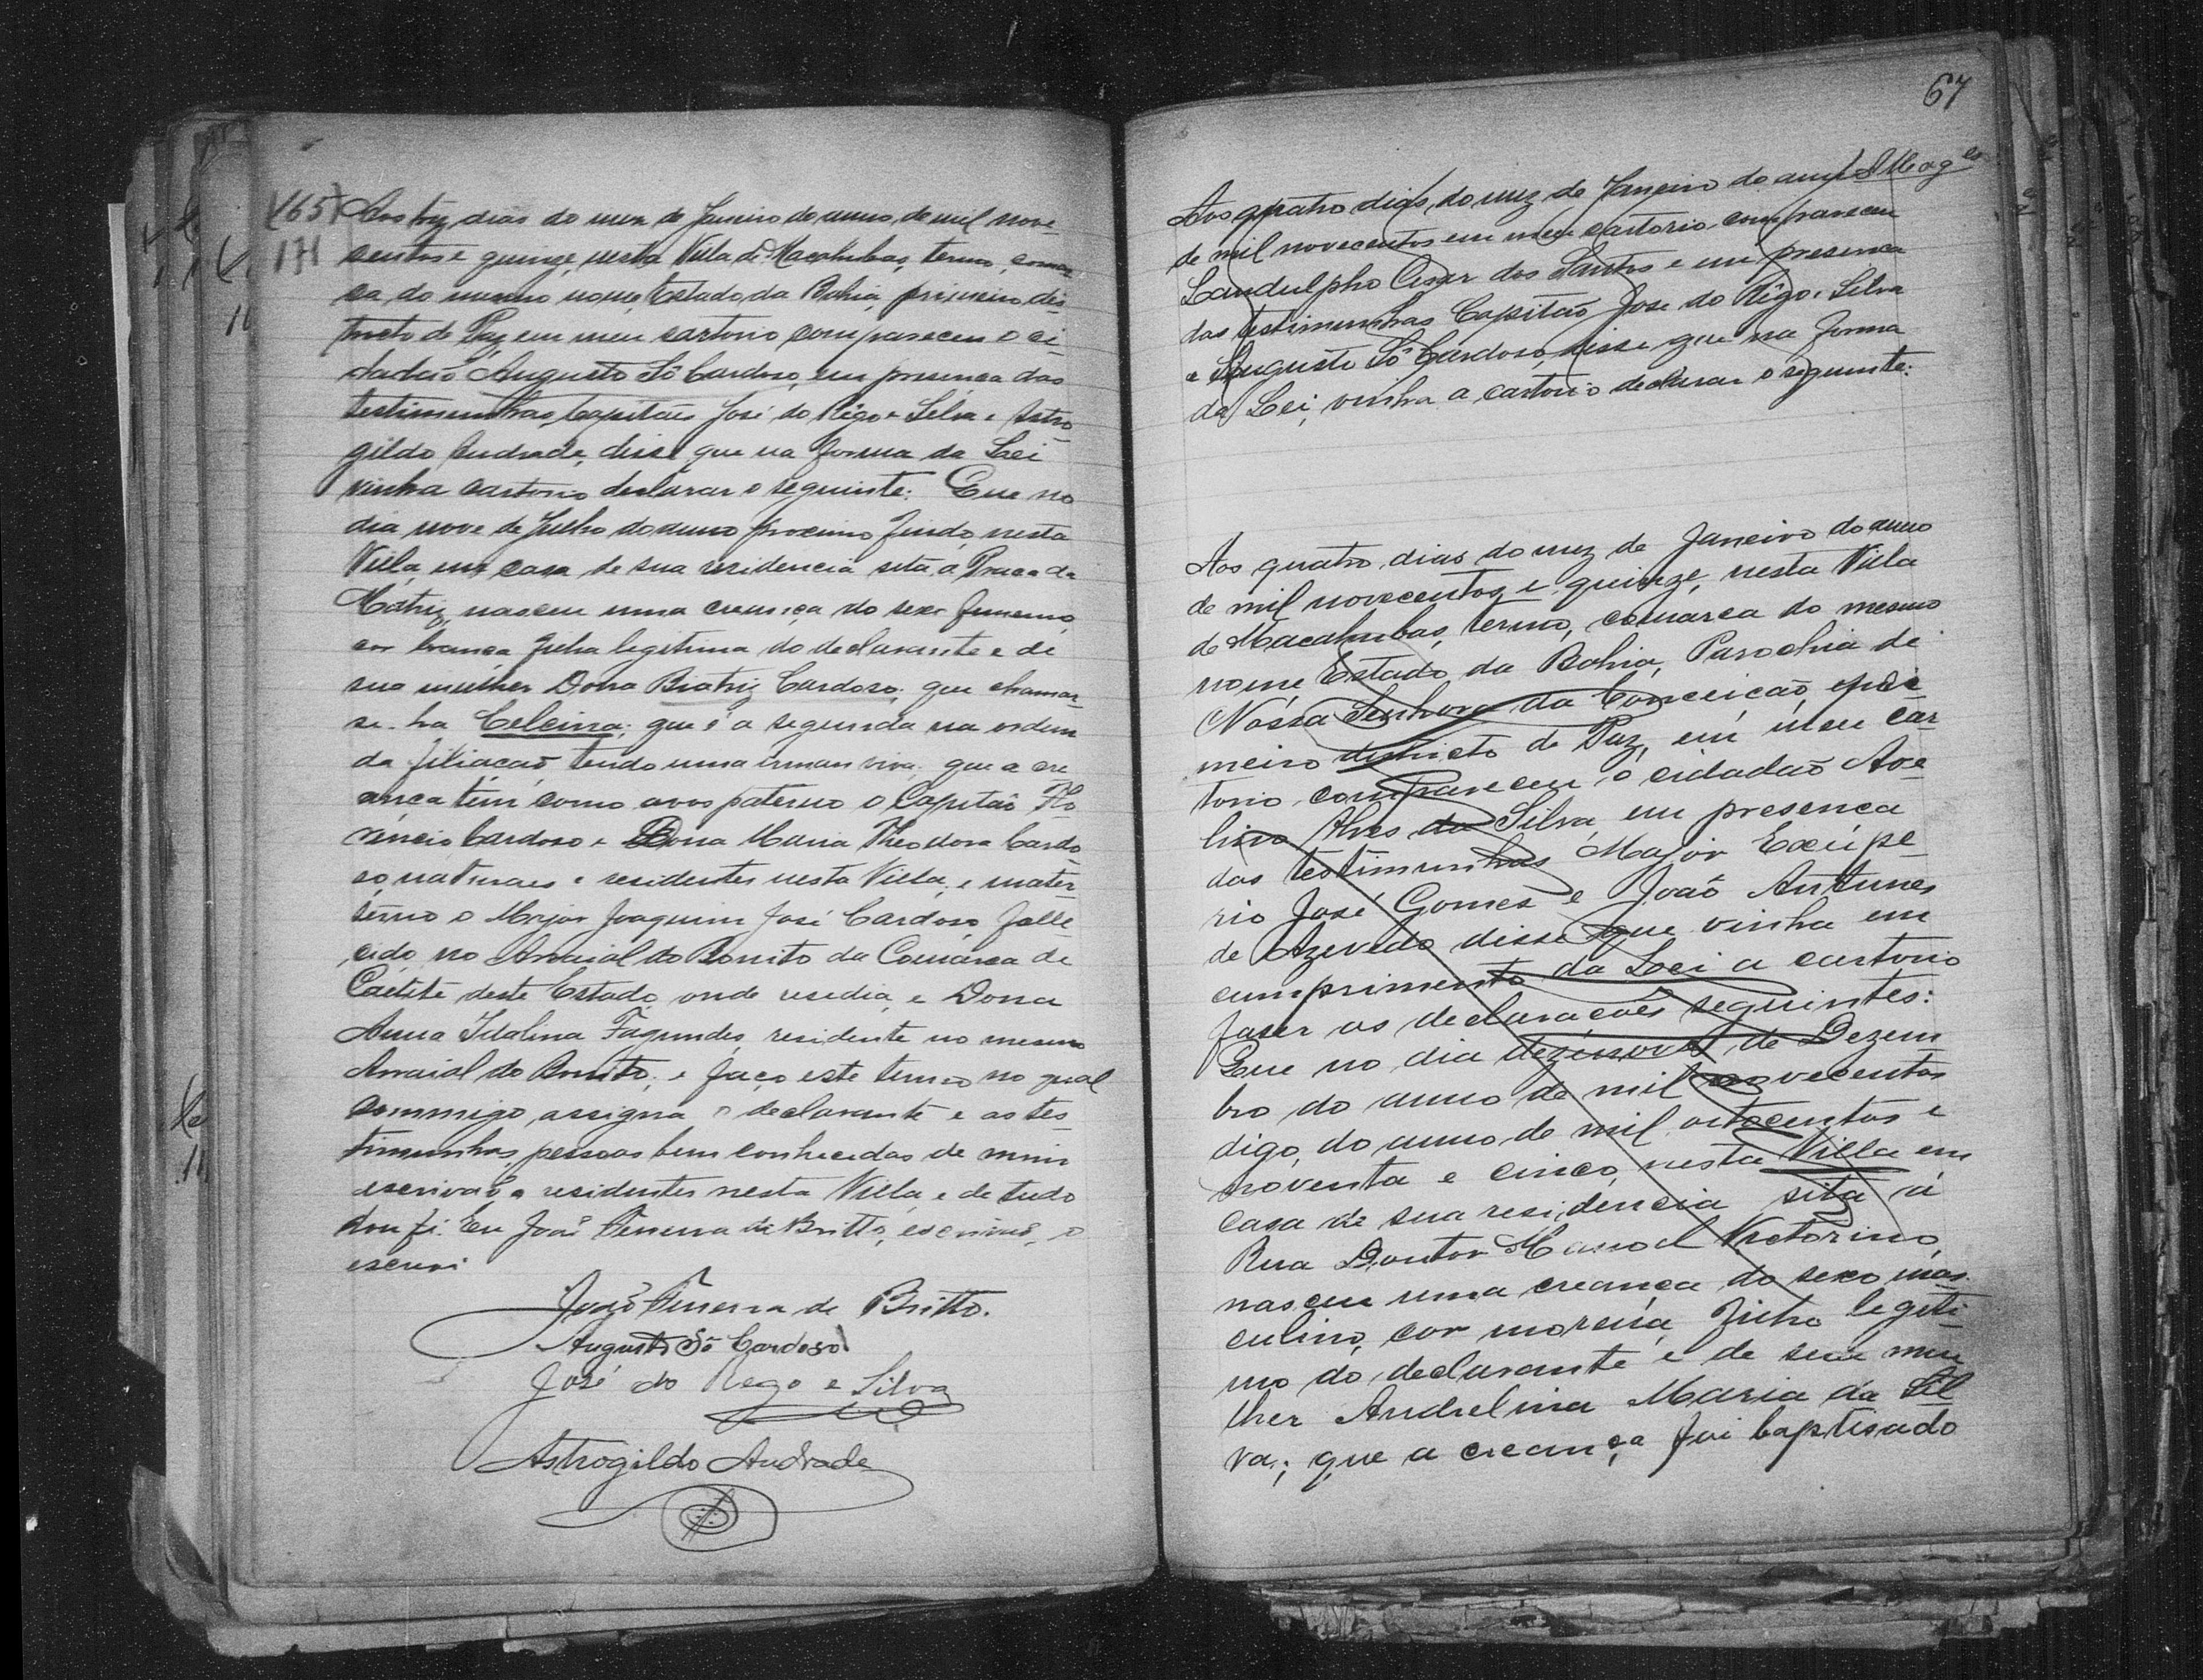 165)
171
Aos trez dias do mez de Janeiro do anno de mil nove-
centos e quinze, nesta Villa de Macahubas, termo, comar
ca do mesmo nome, Estado da Bahia, primeiro dis-
tricto de Paz em meu cartorio compareceu o ci-
dadão Augusto Sô Cardoso, em presença das
testimunhas, Capitão José do Rêgo e Silva e Astro
gildo Andrade, disse que na forma da Lei
vinha cartorio declarar o seguinte: Que no
dia nove de Julho do anno proximo findo, nesta
Villa, em casa de sua residencia sita á Praça da
Matriz, nasceu uma creança do sexo femenino,
cor branca filha legitima do declarante e de
sua mulher Dona Biatriz Cardoso; que chamar
se-ha Celcina; que é a segunda na ordem
da filiação tendo uma irman viva; que a cre
ança têm como avos paterno o Capitão Flo
rencio Cardoso e Dona Maria Theodora Cardo
so, naturaes e residentes nesta Villa, e mater
terno o Major Joaquim José Cardoso, falle
cido no Arraial do Bonito da Comarca de
Caêtité deste Estado, onde residia, e Dona
Anna Idalina Fagundes, residente no mesmo
Arraial do Bonito; e faço este termo no qual
commigo assigna o declarante e as tes
timunhas, pessoas bem conhecidas de mim
escrivão, e residentes nesta Villa, e de tudo
dou fé. Eu João Ferreira de Britto, escrivão, o
escrevi
João Ferreira de Britto.
Augusto Sô Cardoso
José do Rego e Silva
Astrogildo Andrade
67
Aos quatro dias, do mez de Janeiro do anno
de mil novecentos em meu cartorio compareceu
Landulpho Cesar dos Santos e em presenca
das testimunhas Capitão José do Rêgo e Silva
e Augusto Sô Cardoso, disse que na forma
da Lei, vinha a cartorio declarar o seguinte:
Aos quatro dias do mez de Janeiro do anno
de mil novecentos e quinze, nesta Villa
de Macahubas, termo, comarca do mesmo
nome, Estado da Bahia, Parochia de
Nossa Senhora da Conceição, pri
meiro districto de Paz, em meu car
torio compareceu o cidadão Ave
lino Alves da Silva em presenca
das testimunhas Major Exúpe-
rio José Gomes e João Antunes
de Azevedo disse que vinha em
cumprimento da Lei a cartorio
faser as declaracões seguintes:
Que no dia dezenove de Dezem
bro do anno de mil novecentos
digo, do anno de mil oitocentos e
noventa e cinco, nesta Villa em
casa de sua residencia sita á
Rua Doutor Manoel Victorino,
nasceu uma creança do sexo mas-
culino, cor morena, filho legiti-
mo do declarante e de sua mu
lher Andrelina Maria da Sil
va; que a creança foi baptisado